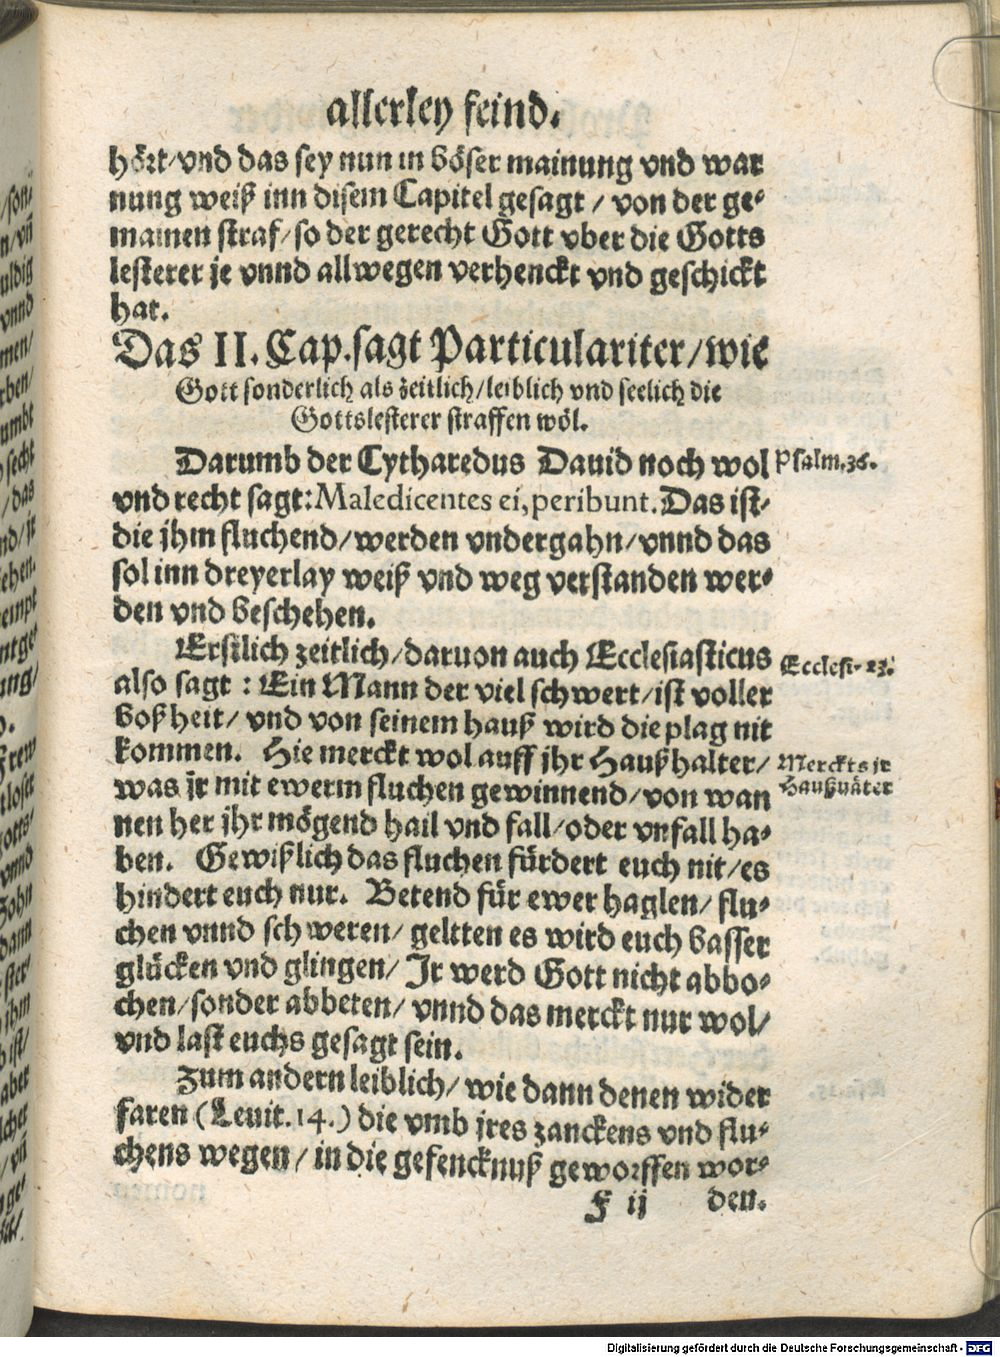 allerley feind.
hört/vnd das sey nun in böser mainung vnd war
nung weiß inn disem Capitel gesagt / von der ge-
mainen straf/so der gerecht Gott vber die Gotts
lesterer je vnnd allwegen verhenckt vnd geschickt
hat.
Das II. Cap.sagt Particulariter/wie
Gott sonderlich als zeitlich/leiblich vnd seelich die
Gottslesterer straffen wöl.
Darumb der Cytharedus Dauid noch wol
Psalm.36.
vnd recht sagt: Maledicentes ei, peribunt. Das ist-
die jhm fluchend/werden vndergahn/vnnd das
sol inn dreyerlay weiß vnd weg verstanden wer-
den vnd beschehen.
Erstlich zeitlich/daruon auch Ecclesiasticus
Ecclesi-23.
also sagt : Ein Mann der viel schwert/ist voller
boßheit/ vnd von seinem hauß wird die plag nit
kommen. Hie merckt wol auff jhr Haußhalter/
Merckts jr
was jr mit ewerm fluchen gewinnend/von wan
Haußuäter
nen her jhr mögend hail vnd fall/oder vnfall ha-
ben. Gewißlich das fluchen fürdert euch nit/es
hindert euch nur. Betend für ewer haglen/ flu-
chen vnnd schweren/ geltten es wird euch basser
glücken vnd glingen/ Jr werd Gott nicht abbo-
chen/sonder abbeten/ vnnd das merckt nur wol/
vnd last euchs gesagt sein.
Zum andern leiblich/ wie dann denen wider
faren (Leuit.14.) die vmb jres zanckens vnd flu-
chens wegen/ in die gefencknuß geworffen wor-
F ij den.
Digitalisierung gefördert durch die Deutsche Forschungsgemeinschaft - DFG